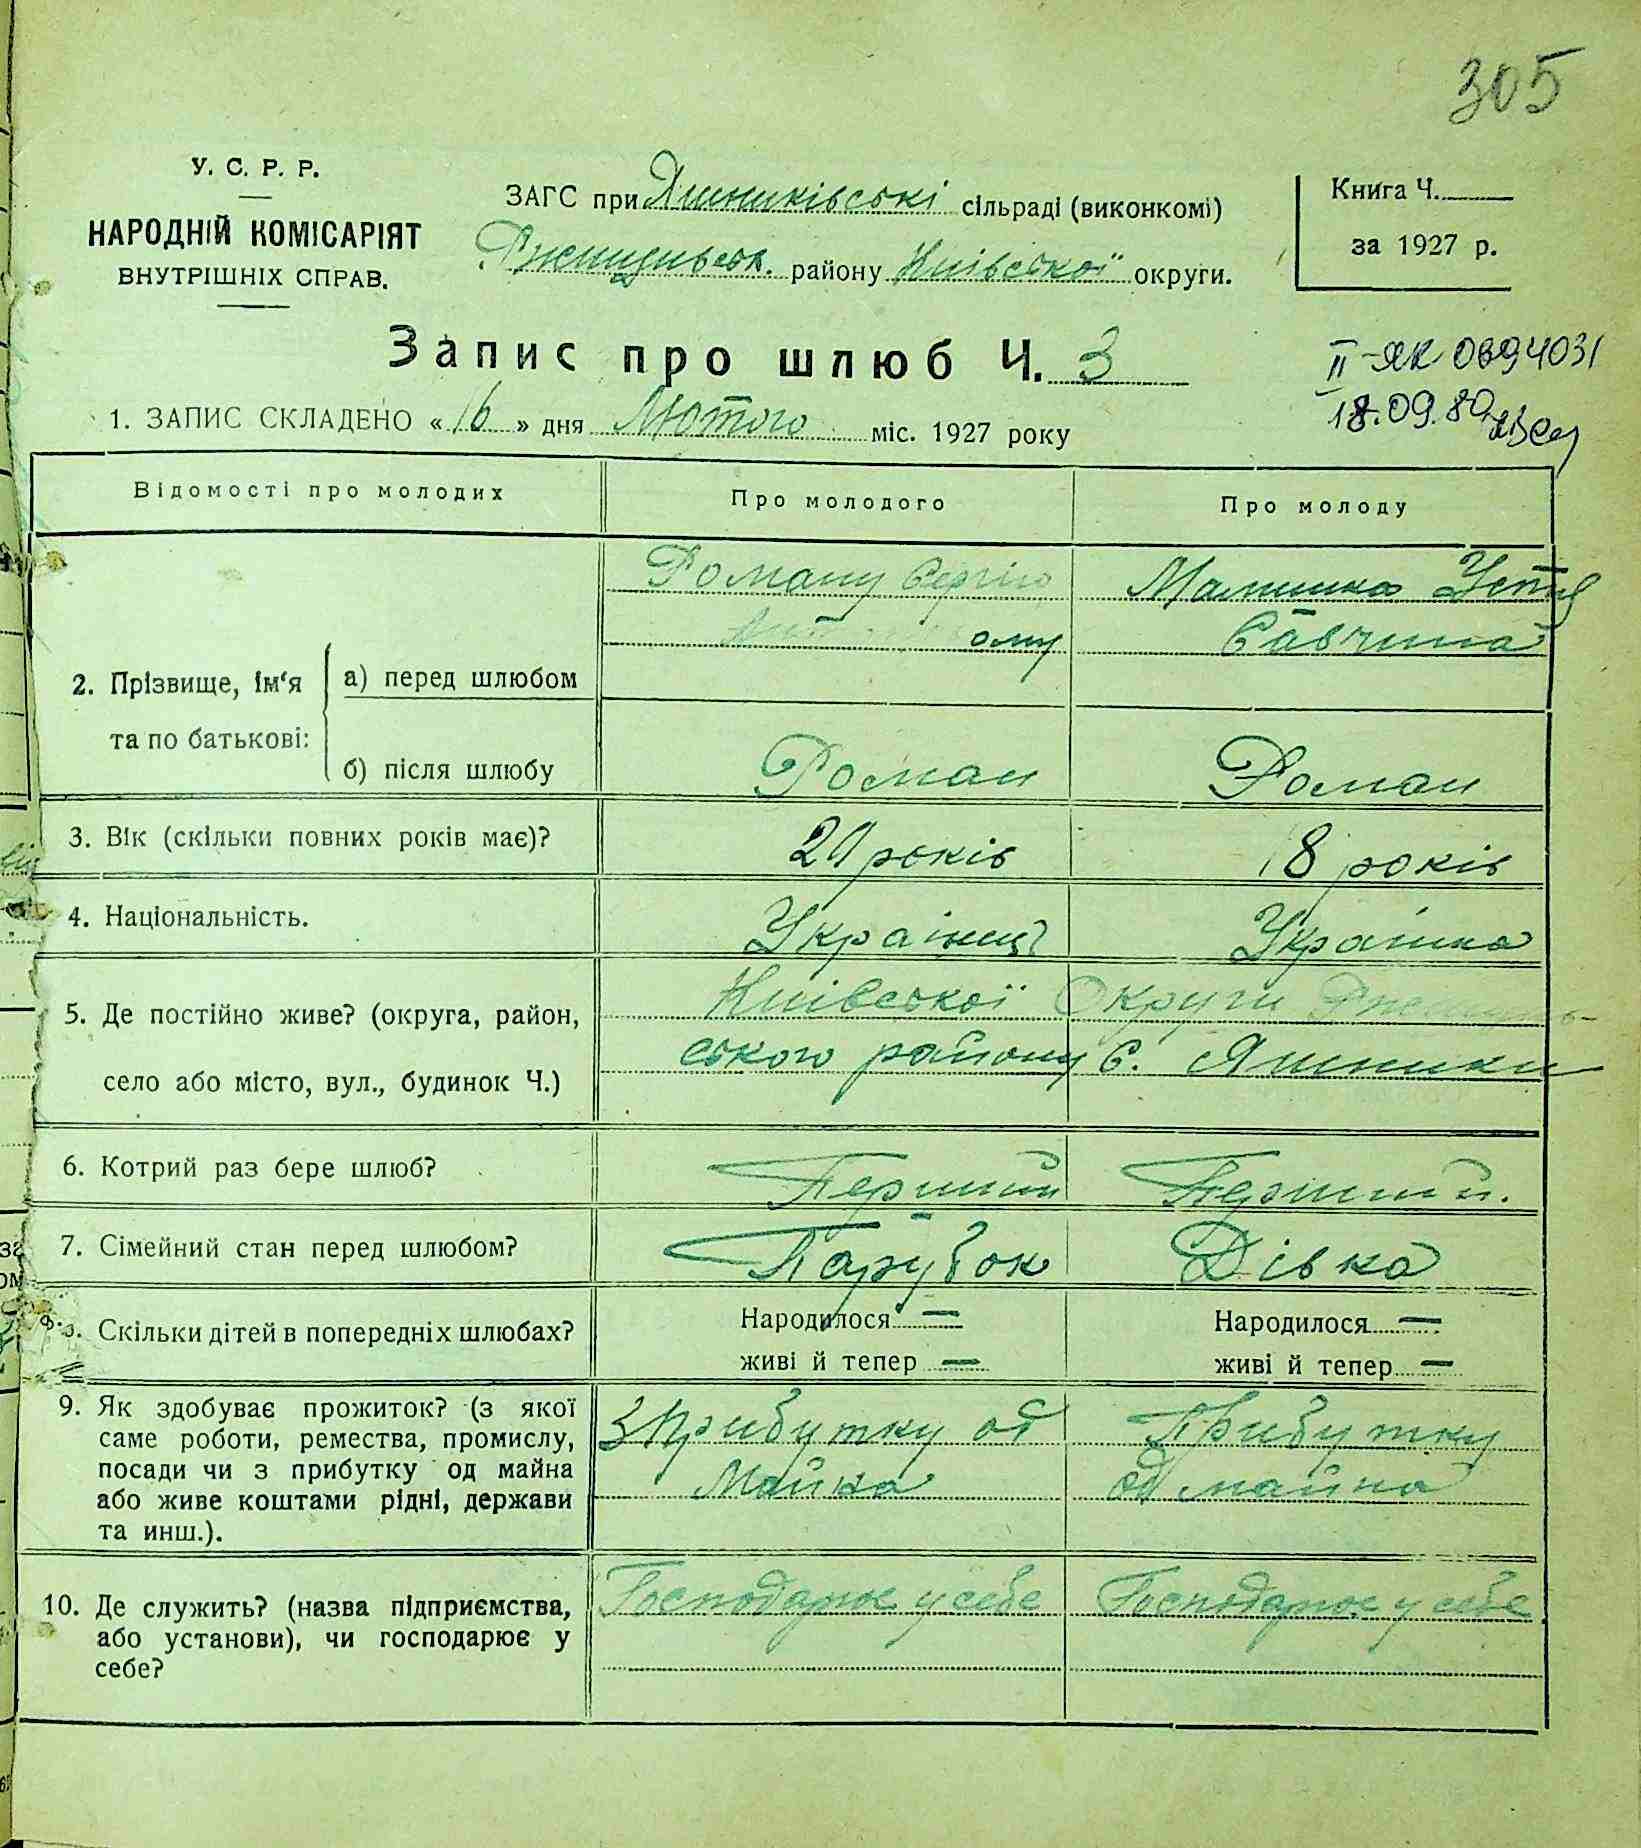 305
У. С. Р. Р.
НАРОДНІЙ КОМІСАРІЯТ
ВНУТРІШНІХ СПРАВ.
ЗАГС при Яшниківські сільраді (виконкомі)
Ржищівськ. району Київської округи.
Книга Ч.
за 1927 р.
Запис про шлюб Ч. 3
II-ЯК 0694031
18.09.80
1. ЗАПИС СКЛАДЕНО « 16 » дня Лютого міс. 1927 року
Відомості про молодих
Про молодого
Про молоду
2. Прізвище, ім'я та по батькові:
а) перед шлюбом
Роману Сергію
ому
Малишка Устя
Савчина
б) після шлюбу
Роман
Роман
3. Вік (скільки повних років має)?
20 років
18 років
4. Національність.
Украінець
Украінка
5. Де постійно живе? (округа, район,
село або місто, вул., будинок Ч.)
Київської Округи Ржищів-
ського району с. Яшники
6. Котрий раз бере шлюб?
Перший
Перший.
7. Сімейний стан перед шлюбом?
Парубок
Дівка
8. Скільки дітей в попередніх шлюбах?
Народилося —
живі й тепер —
Народилося —
живі й тепер —
9. Як здобуває прожиток? (з якої
саме роботи, ремества, промислу,
посади чи з прибутку од майна
або живе коштами рідні, держави
та инш.).
З прибутку од
Майна
Прибутку
од майна
10. Де служить? (назва підприємства,
або установи), чи господарює у
себе?
Господарює у себе
Господарює у себе